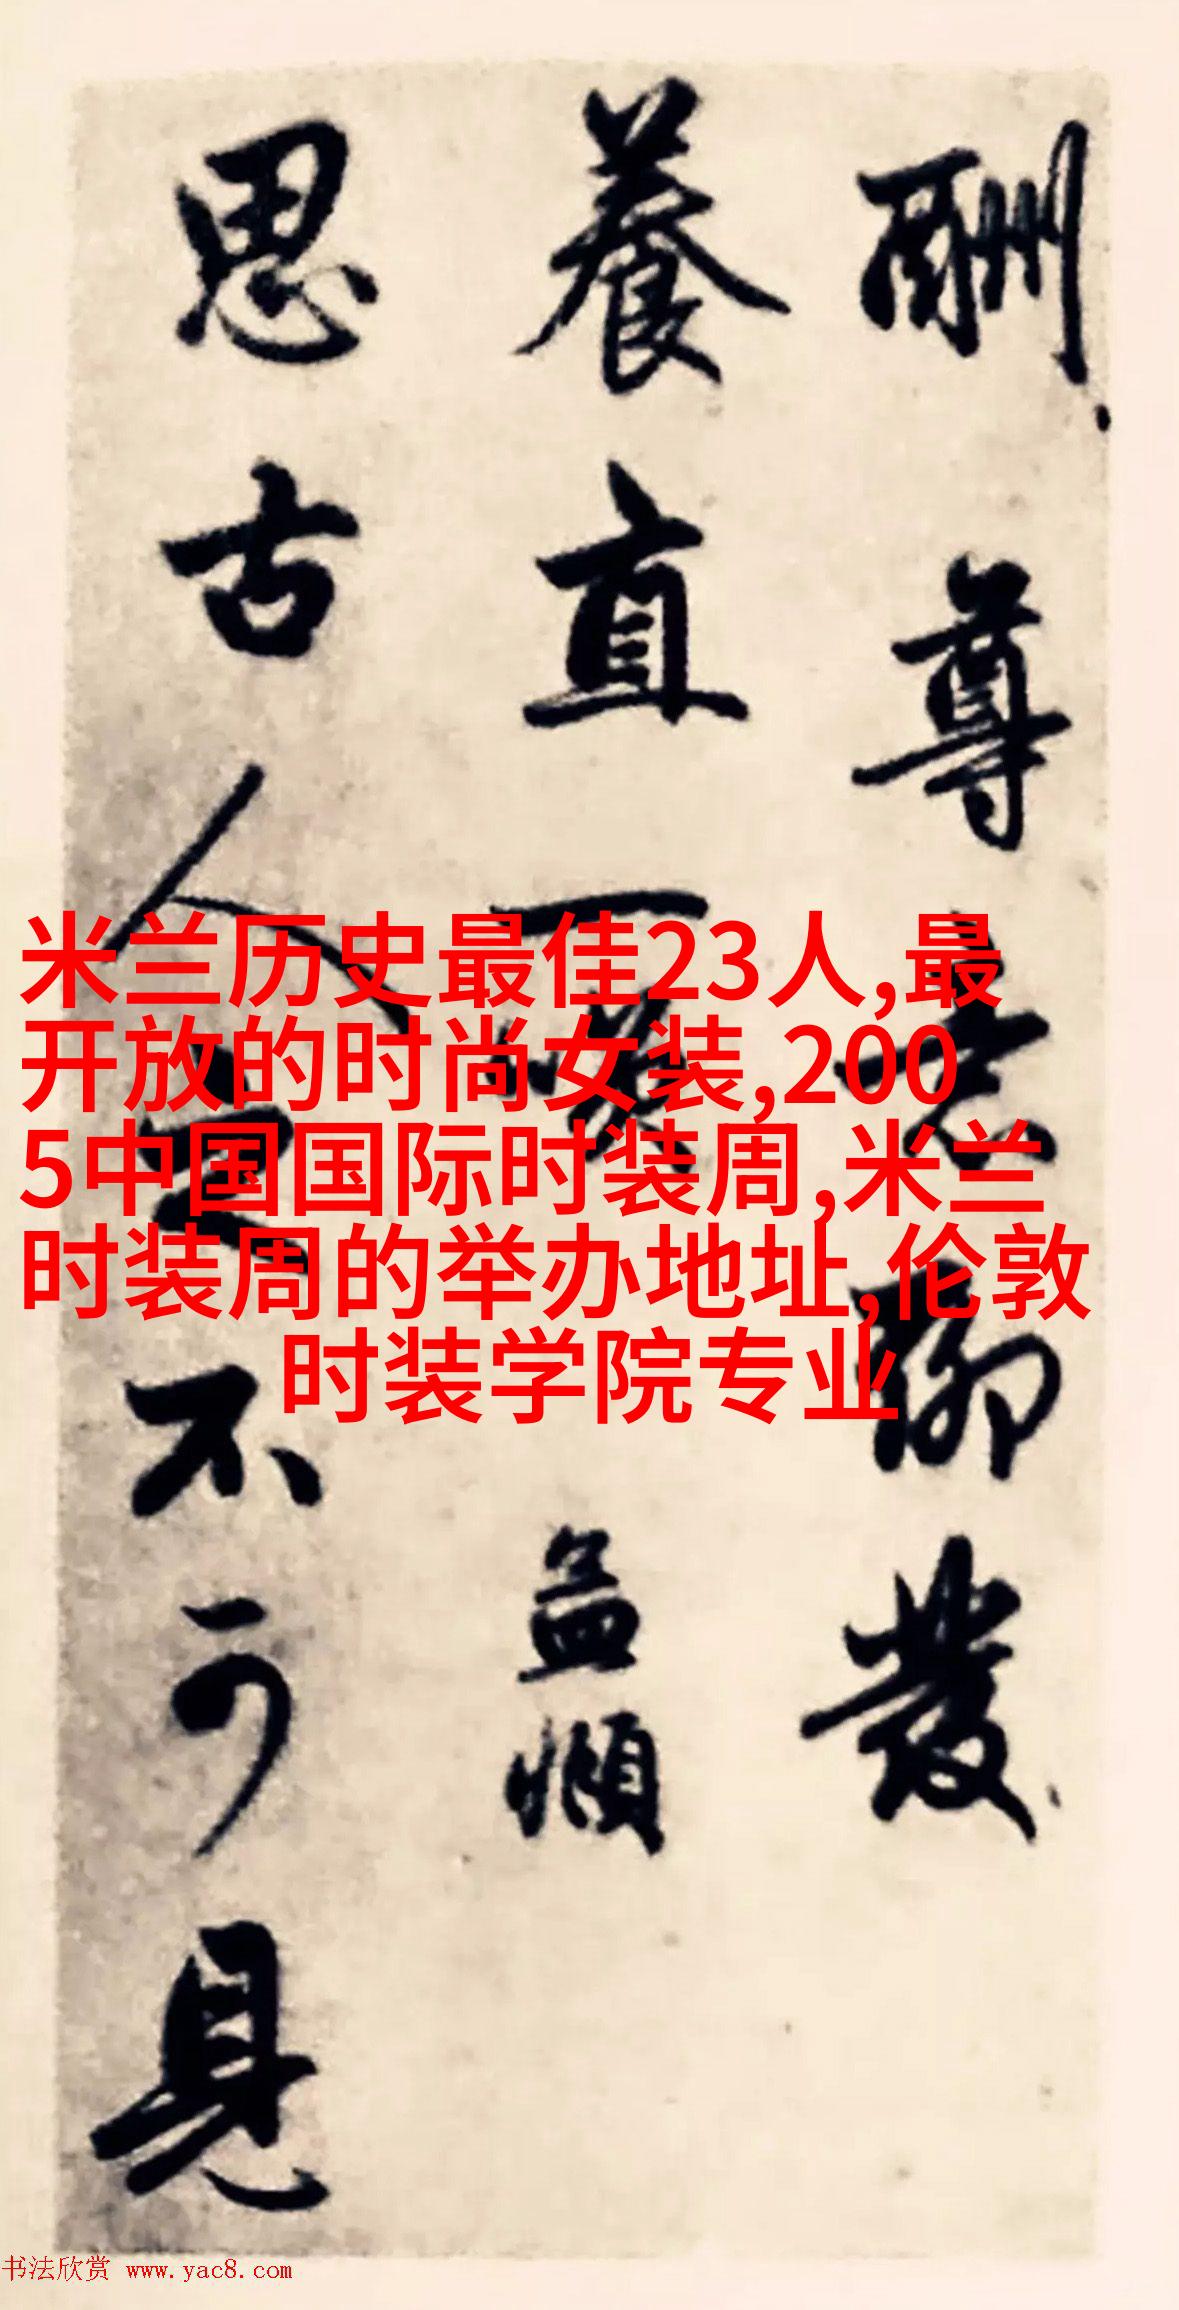 酬尊老聊發
養直一顧孟頫
思古人而不可見
米兰历史最佳23人,最
开放的时尚女装,200
5中国国际时装周,米兰
时装周的举办地址,伦敦
时装学院专业
书法欣赏 www.yac8.com